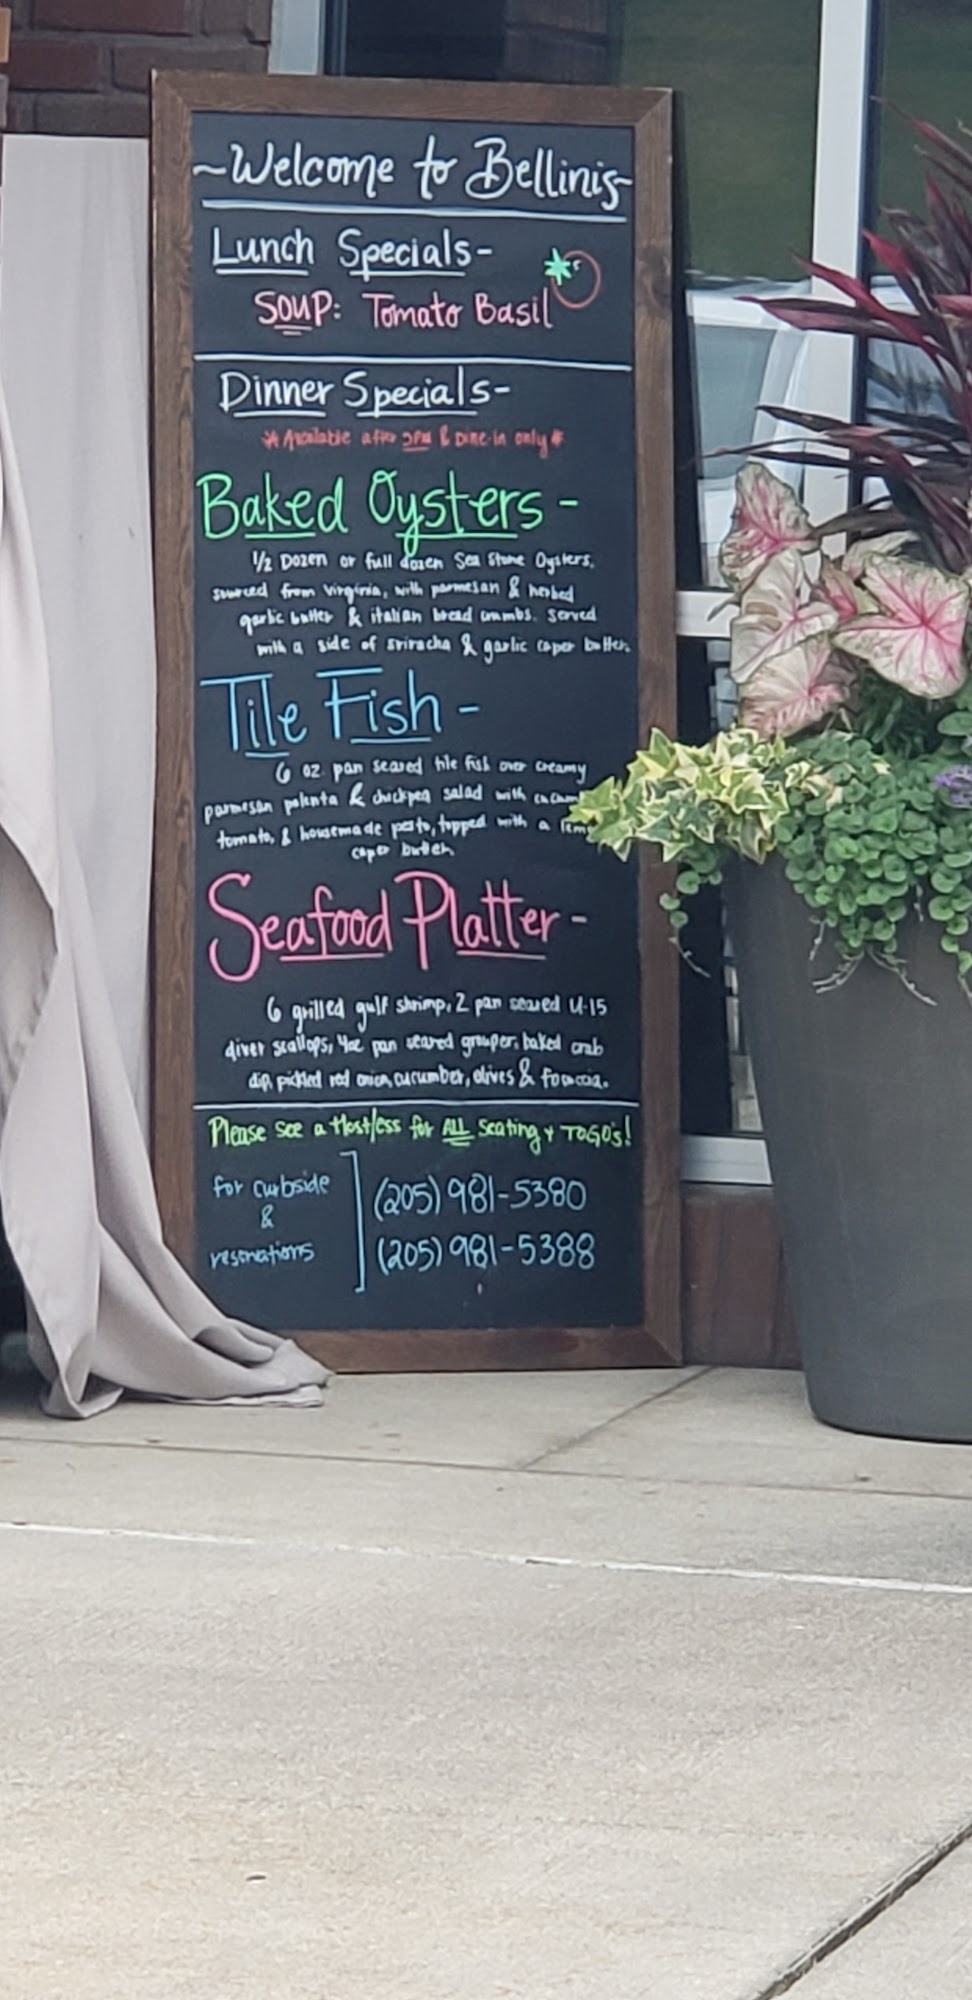 ~Welcome to Bellinis~
Lunch Specials-
SOUP: Tomato Basil
Dinner Specials-
* Available after 5PM & Dine-in only *
Baked Oysters -
1/2 Dozen or full dozen Sea Stone Oysters,
sourced from virginia, with parmesan & herbed
garlic butter & italian bread crumbs. Served
with a side of sriracha & garlic caper butter.
Tile Fish -
6 oz pan seared tile fish over creamy
parmesan polenta & chickpea salad with
tomato, & housemade pesto, topped with a
caper butter.
Seafood Platter -
6 grilled gulf shrimp, 2 pan seared U-15
diver scallops, 4oz pan seared grouper, baked crab
dip, pickled red onion, cucumber, olives & foccacia.
Please see a Host/ess for ALL seating + TOGO's!
for curbside
&
reservations
(205) 981-5380
(205) 981-5388